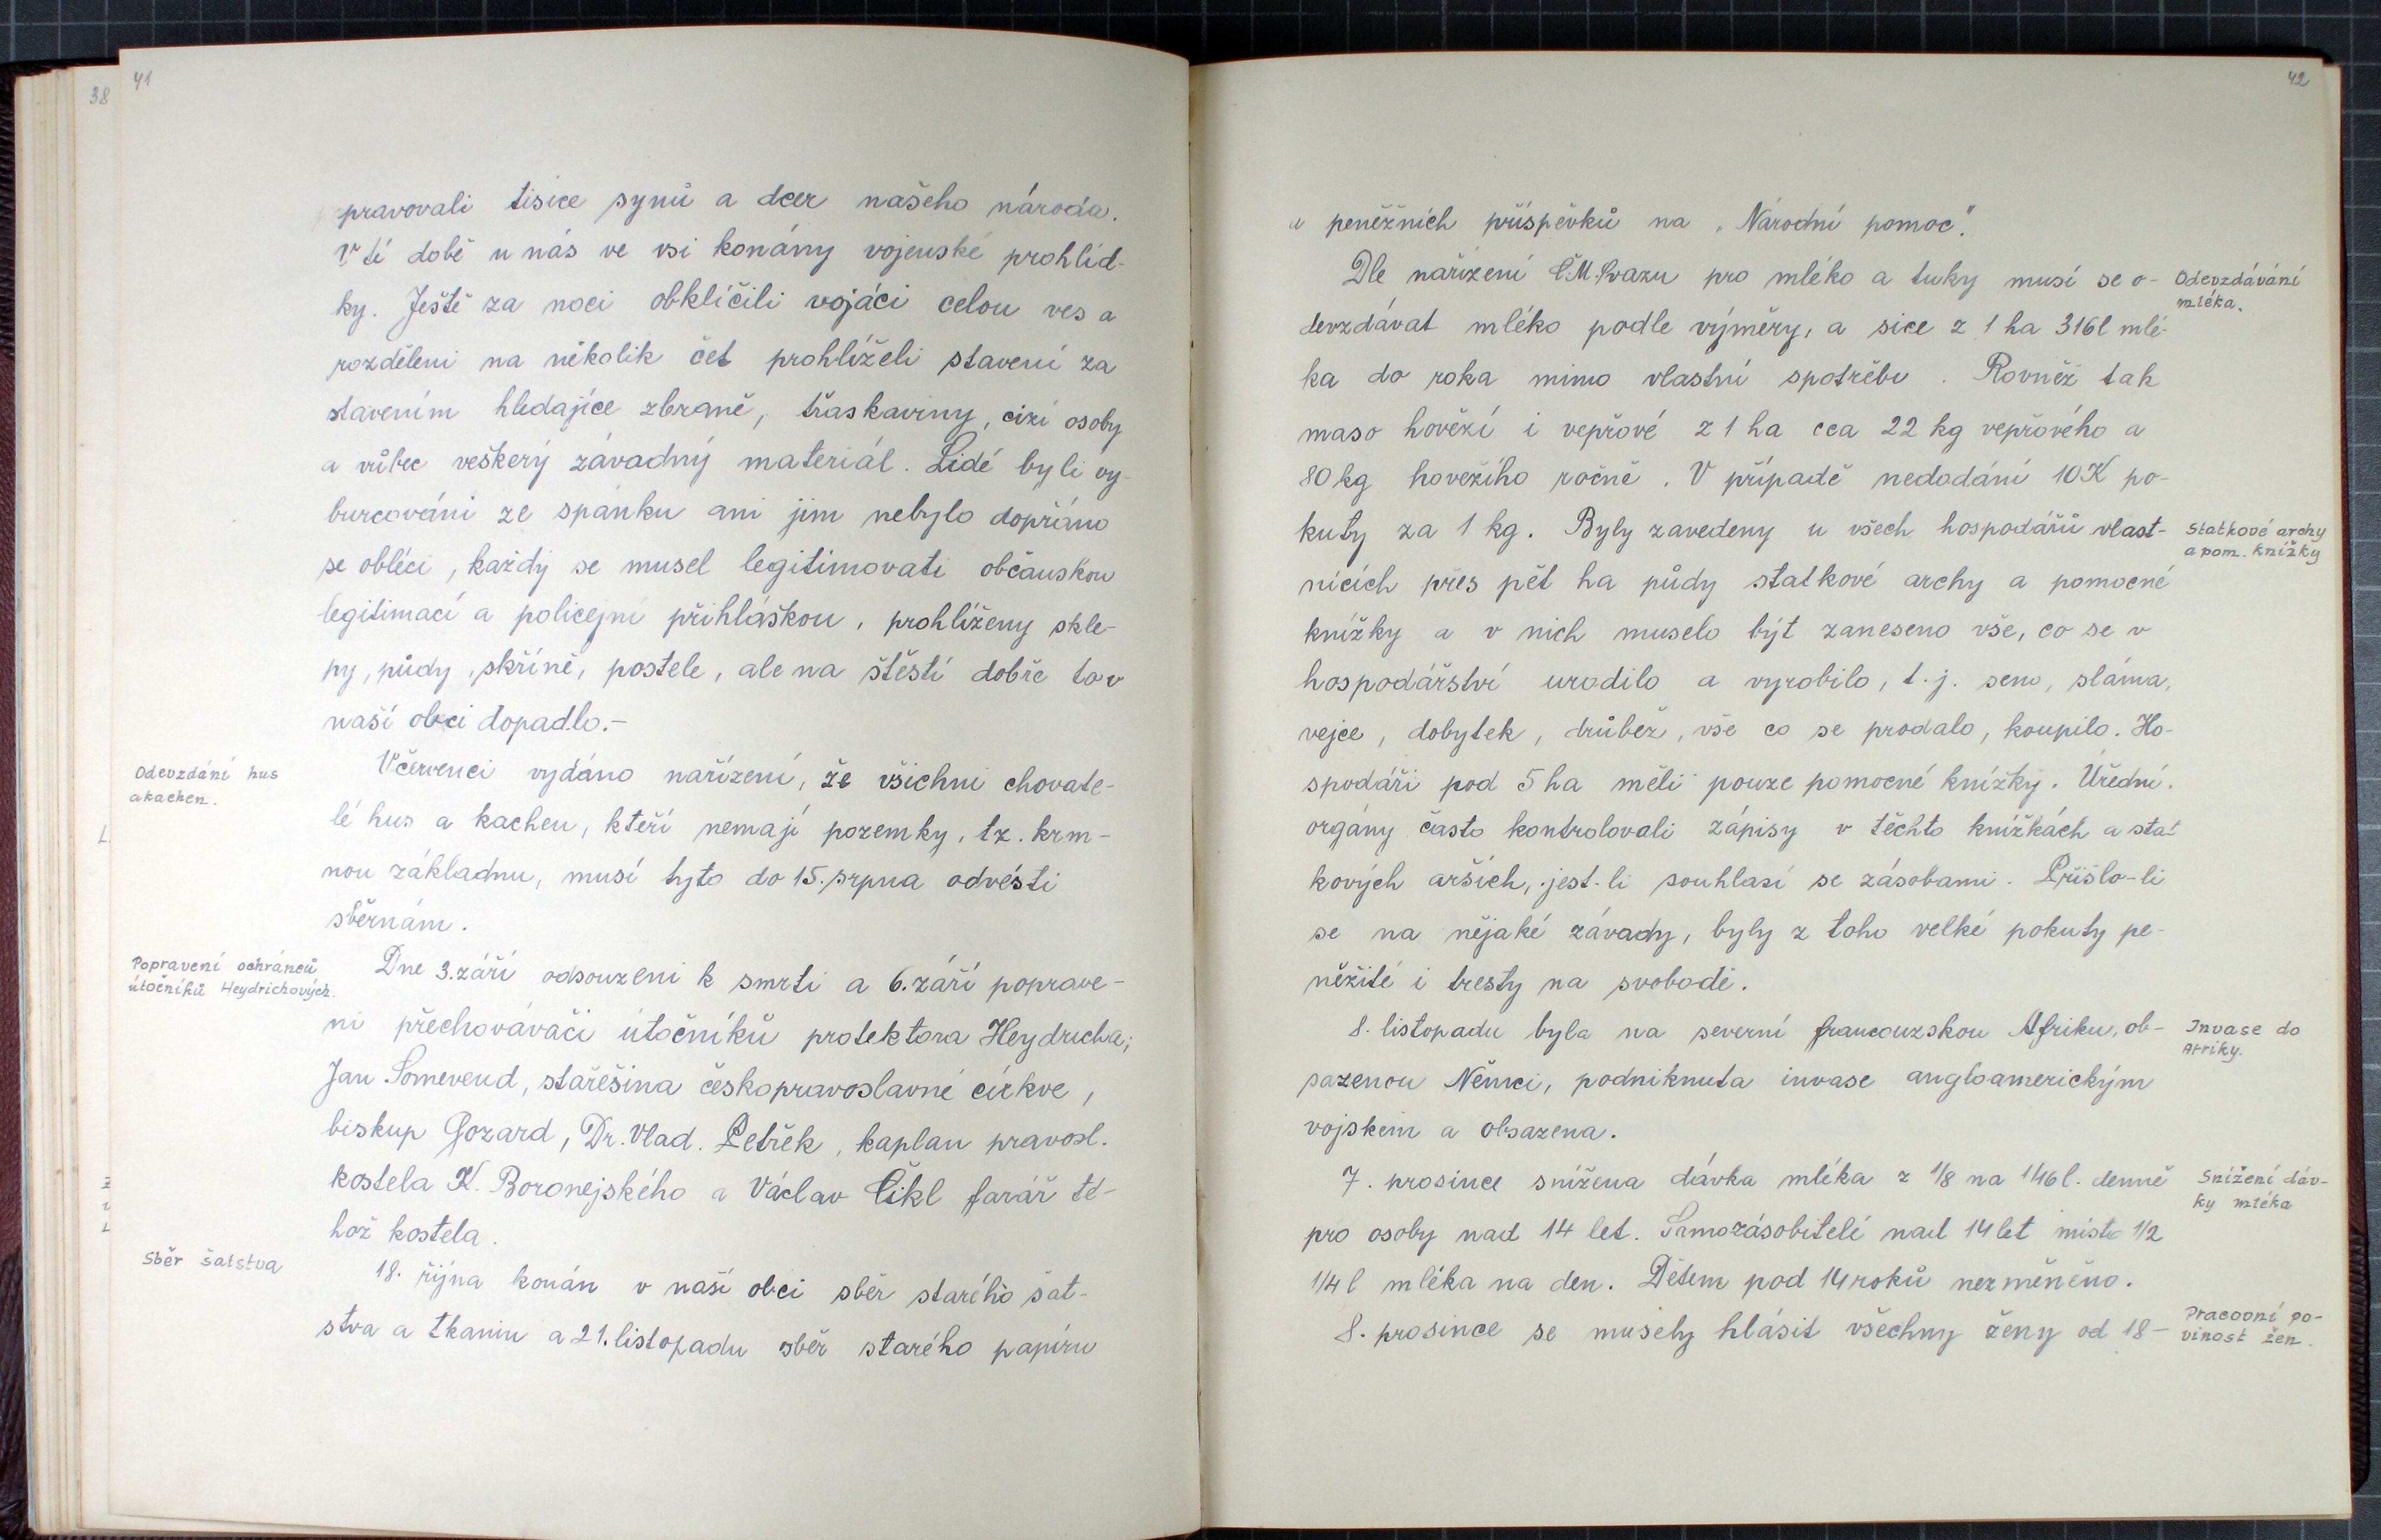 41
38
pravovali tisíce synů a dcer našeho národa.
V té době u nás ve vsi konány vojenské prohlíd-
ky. Ještě za noci obklíčili vojáci celou ves a
rozděleni na několik čet prohlíželi stavení za
stavením hledajíce zbraně, třaskaviny, cizí osoby
a vůbec veškerý závadný materiál. Lidé byli vy-
burcováni ze spánku ani jim nebylo dopřáno
se obléci, každý se musel legitimovati občanskou
legitimací a policejní přihláškou, prohlíženy skle-
py, půdy, skříně, postele, ale na štěstí dobře to v
naší obci dopadlo.-
Odevzdání hus
a kachen.
V červenci vydáno nařízení, že všichni chovate-
lé hus a kachen, kteří nemají pozemky, tz. krm-
nou základnu, musí tyto do 15. srpna odvésti
sběrnám.
Popravení ochránců
útočníků Heydrichových.
Dne 3. září odsouzeni k smrti a 6. září poprave-
ni přechovávači útočníků protektora Heydricha;
Jan Somevend, stařešina českopravoslavné církve,
biskup Gozard, Dr. Vlad. Petřek, kaplan pravosl.
kostela K. Boronejského a Václav Čikl farář té-
hož kostela.
Sběr šatstva
18. října konán v naší obci sběr starého šat-
stva a tkanin a 21. listopadu sběr starého papíru
42
a peněžních příspěvků na „Národní pomoc".
Dle nařízení Č.M. Svazu pro mléko a tuky musí se o-
Odevzdávání
mléka.
devzdávat mléko podle výměry, a sice z 1 ha 316 l mlé-
ka do roka mimo vlastní spotřebu. Rovněž tak
maso hovězí i vepřové z 1 ha cca 22 kg vepřového a
80 kg hovězího ročně. V případě nedodání 10 K po-
kuty za 1 kg. Byly zavedeny u všech hospodářů vlast-
Statkové archy
a pom. knížky
nících přes pět ha půdy statkové archy a pomocné
knížky a v nich muselo být zaneseno vše, co se v
hospodářství urodilo a vyrobilo, t.j. seno, sláma,
vejce, dobytek, drůbež, vše co se prodalo, koupilo. Ho-
spodáři pod 5 ha měli pouze pomocné knížky. Úřední
orgány často kontrolovali zápisy v těchto knížkách a stat
kových arších, jest-li souhlasí se zásobami. Přišlo-li
se na nějaké závady, byly z toho velké pokuty pe-
něžité i tresty na svobodě.
8. listopadu byla na severní francouzskou Afriku, ob-
Invase do
Afriky.
sazenou Němci, podniknuta invase angloamerickým
vojskem a obsazena.
7. prosince snížena dávka mléka z 1/8 na 1/16 l. denně
Snížení dáv-
ky mléka
pro osoby nad 14 let. Samozásobitelé nad 14 let místo 1/2
1/4 l mléka na den. Dětem pod 14 roků nezměněno.
8. prosince se musely hlásit všechny ženy od 18-
Pracovní po-
vinost žen.